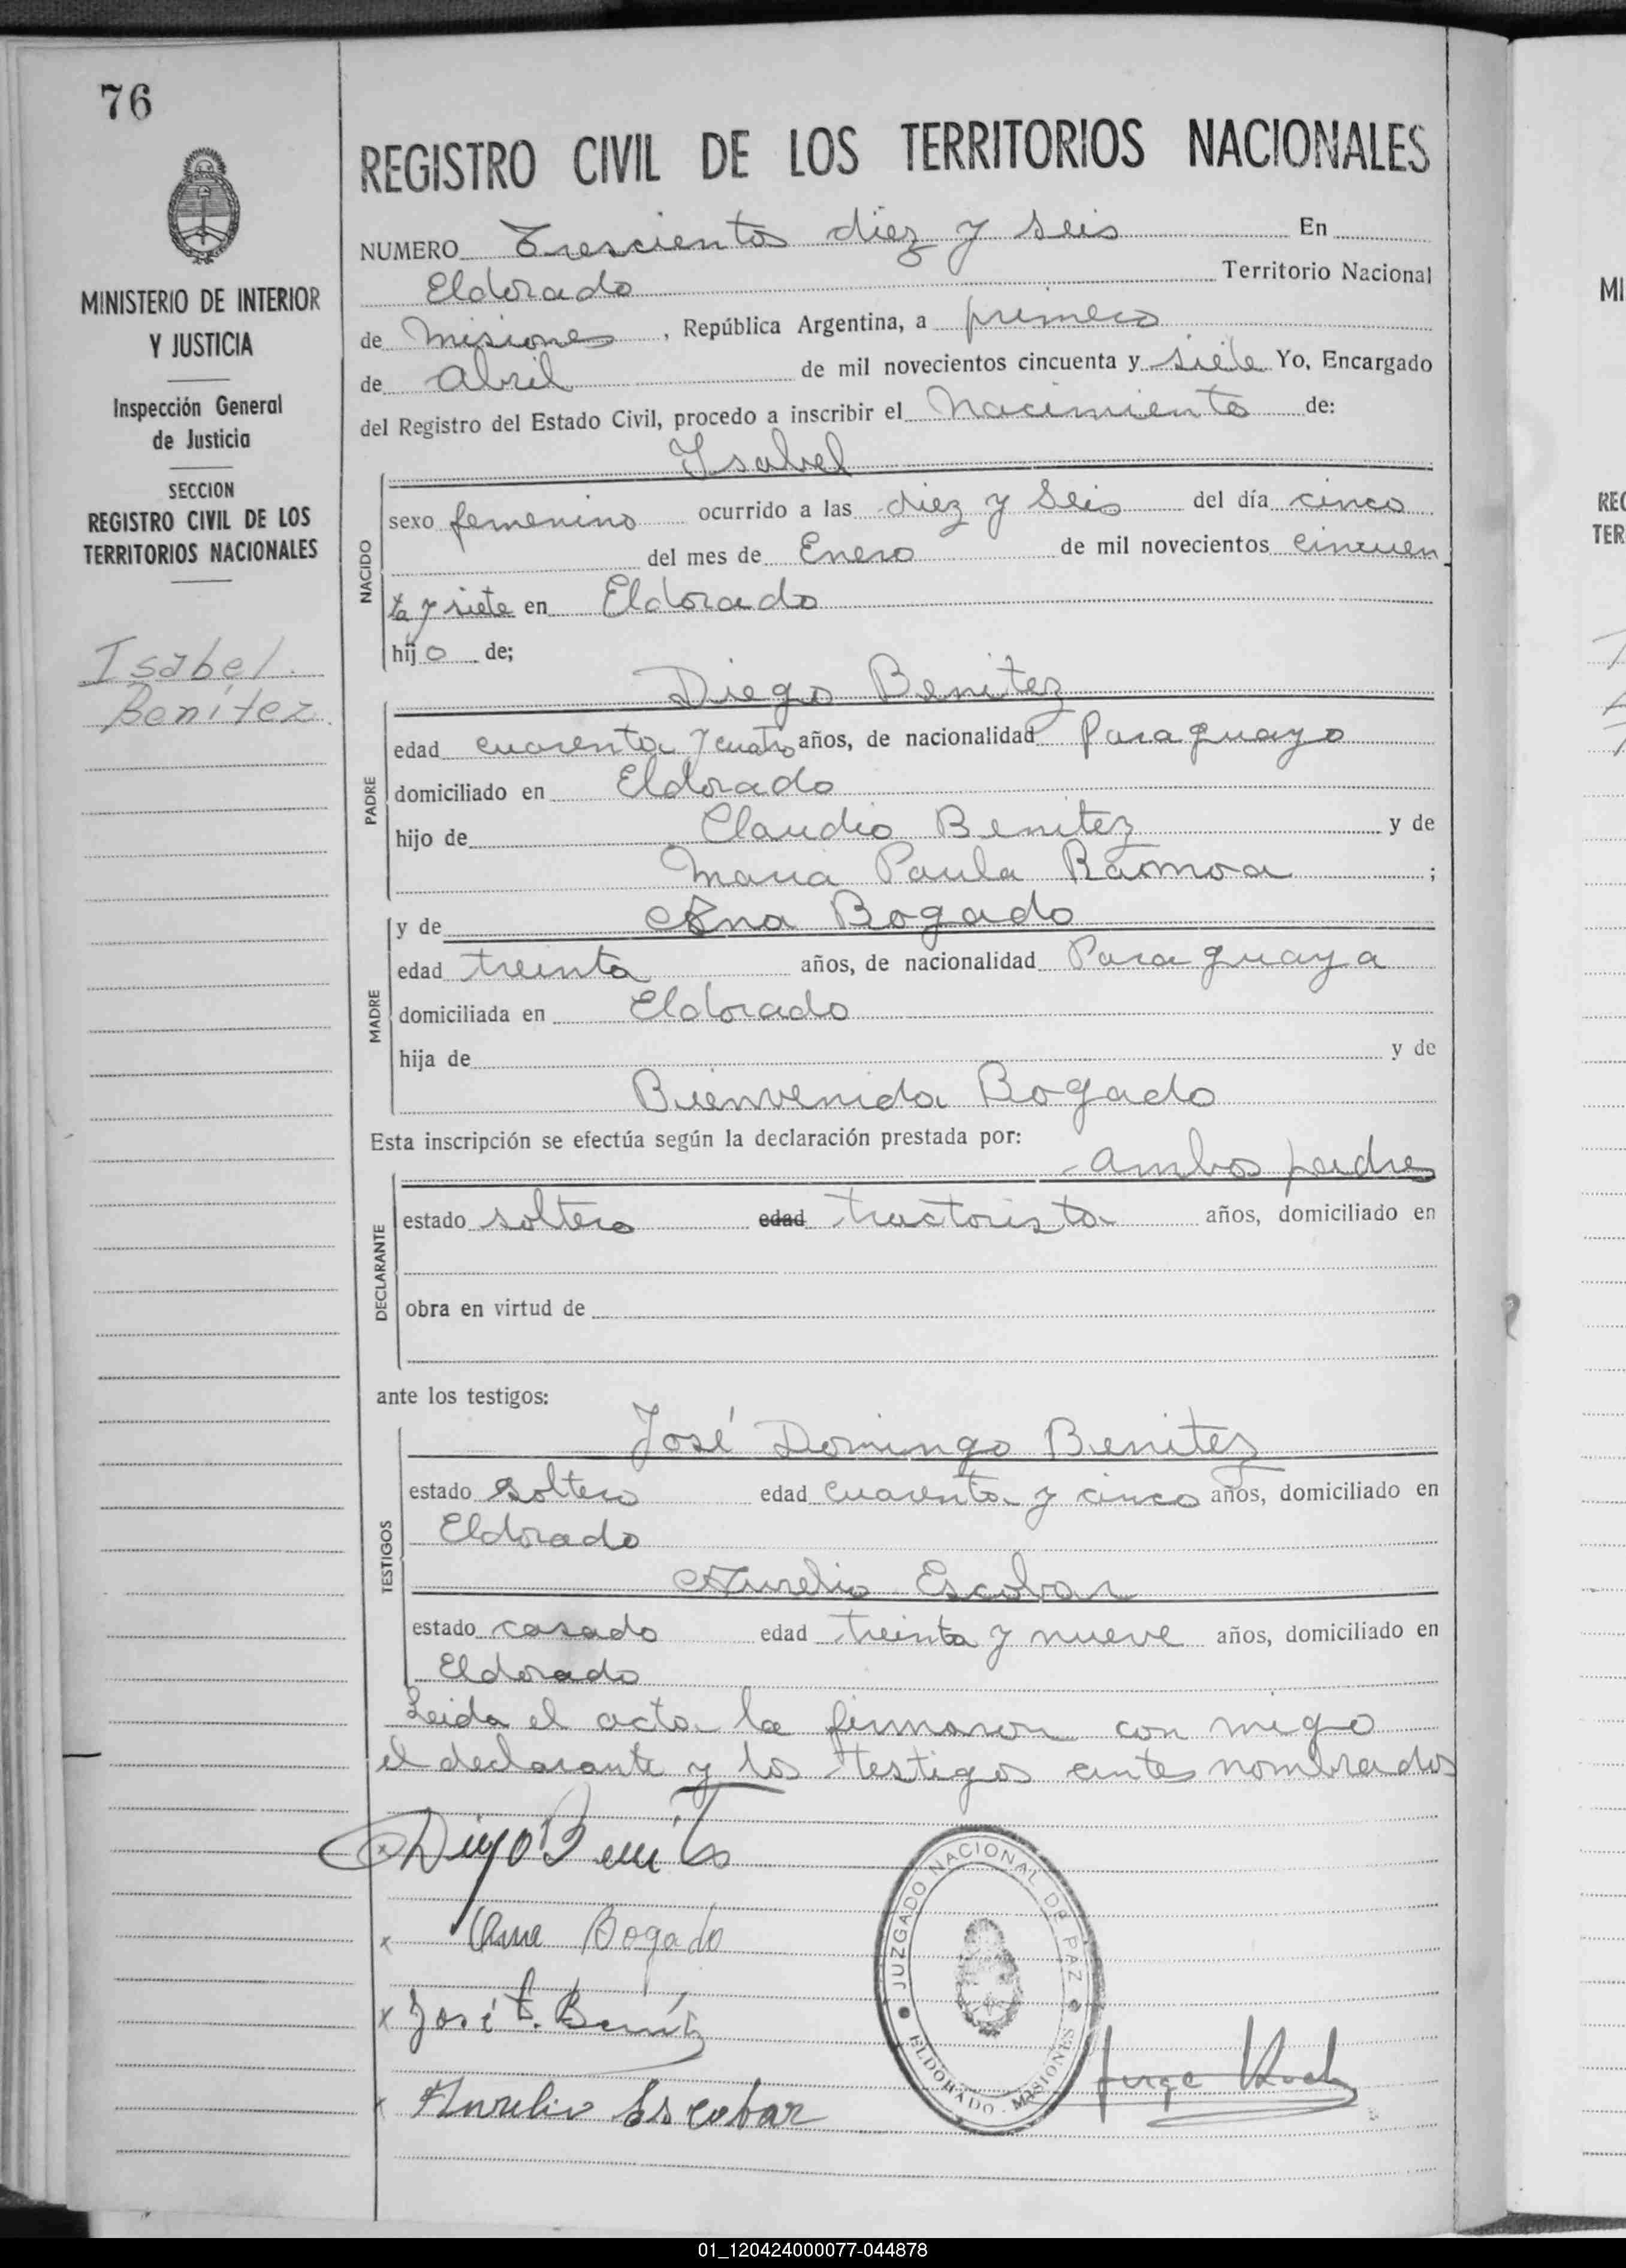 76
MINISTERIO DE INTERIOR
Y JUSTICIA
Inspección General
de Justicia
SECCION
REGISTRO CIVIL DE LOS
TERRITORIOS NACIONALES
Isabel
Benítez
REGISTRO CIVIL DE LOS TERRITORIOS NACIONALES
NUMERO Trescientos diez y seis En
Eldorado Territorio Nacional
de Misiones, República Argentina, a primero
de abril de mil novecientos cincuenta y siete Yo, Encargado
del Registro del Estado Civil, procedo a inscribir el nacimiento de:
Ysabel
NACIDO
sexo femenino ocurrido a las diez y seis del día cinco
del mes de Enero de mil novecientos cincuen
ta y siete en Eldorado
hijo de;
Diego Benitez
PADRE
edad cuarenta y cuatro años, de nacionalidad Paraguayo
domiciliado en Eldorado
hijo de Claudio Benitez y de
Maria Paula Ramoa ;
MADRE
y de Ana Bogado
edad treinta años, de nacionalidad Paraguaya
domiciliada en Eldorado
hija de y de
Bienvenida Bogado
Esta inscripción se efectúa según la declaración prestada por:
ambos padres
DECLARANTE
estado soltero edad tractorista años, domiciliado en
obra en virtud de
ante los testigos:
José Domingo Benitez
TESTIGOS
estado soltero edad cuarenta y cinco años, domiciliado en
Eldorado
Aurelio Escobar
estado casado edad treinta y nueve años, domiciliado en
Eldorado
Leida el acta la firmaron con migo
el declarante y los testigos antes nombrados
Diego Benitez
x Ana Bogado
x José Benítez
x Aurelio Escobar
JUZGADO NACIONAL DE PAZ
ELDORADO - MISIONES
Jorge
MI
REG
TER
01_120424000077-044878